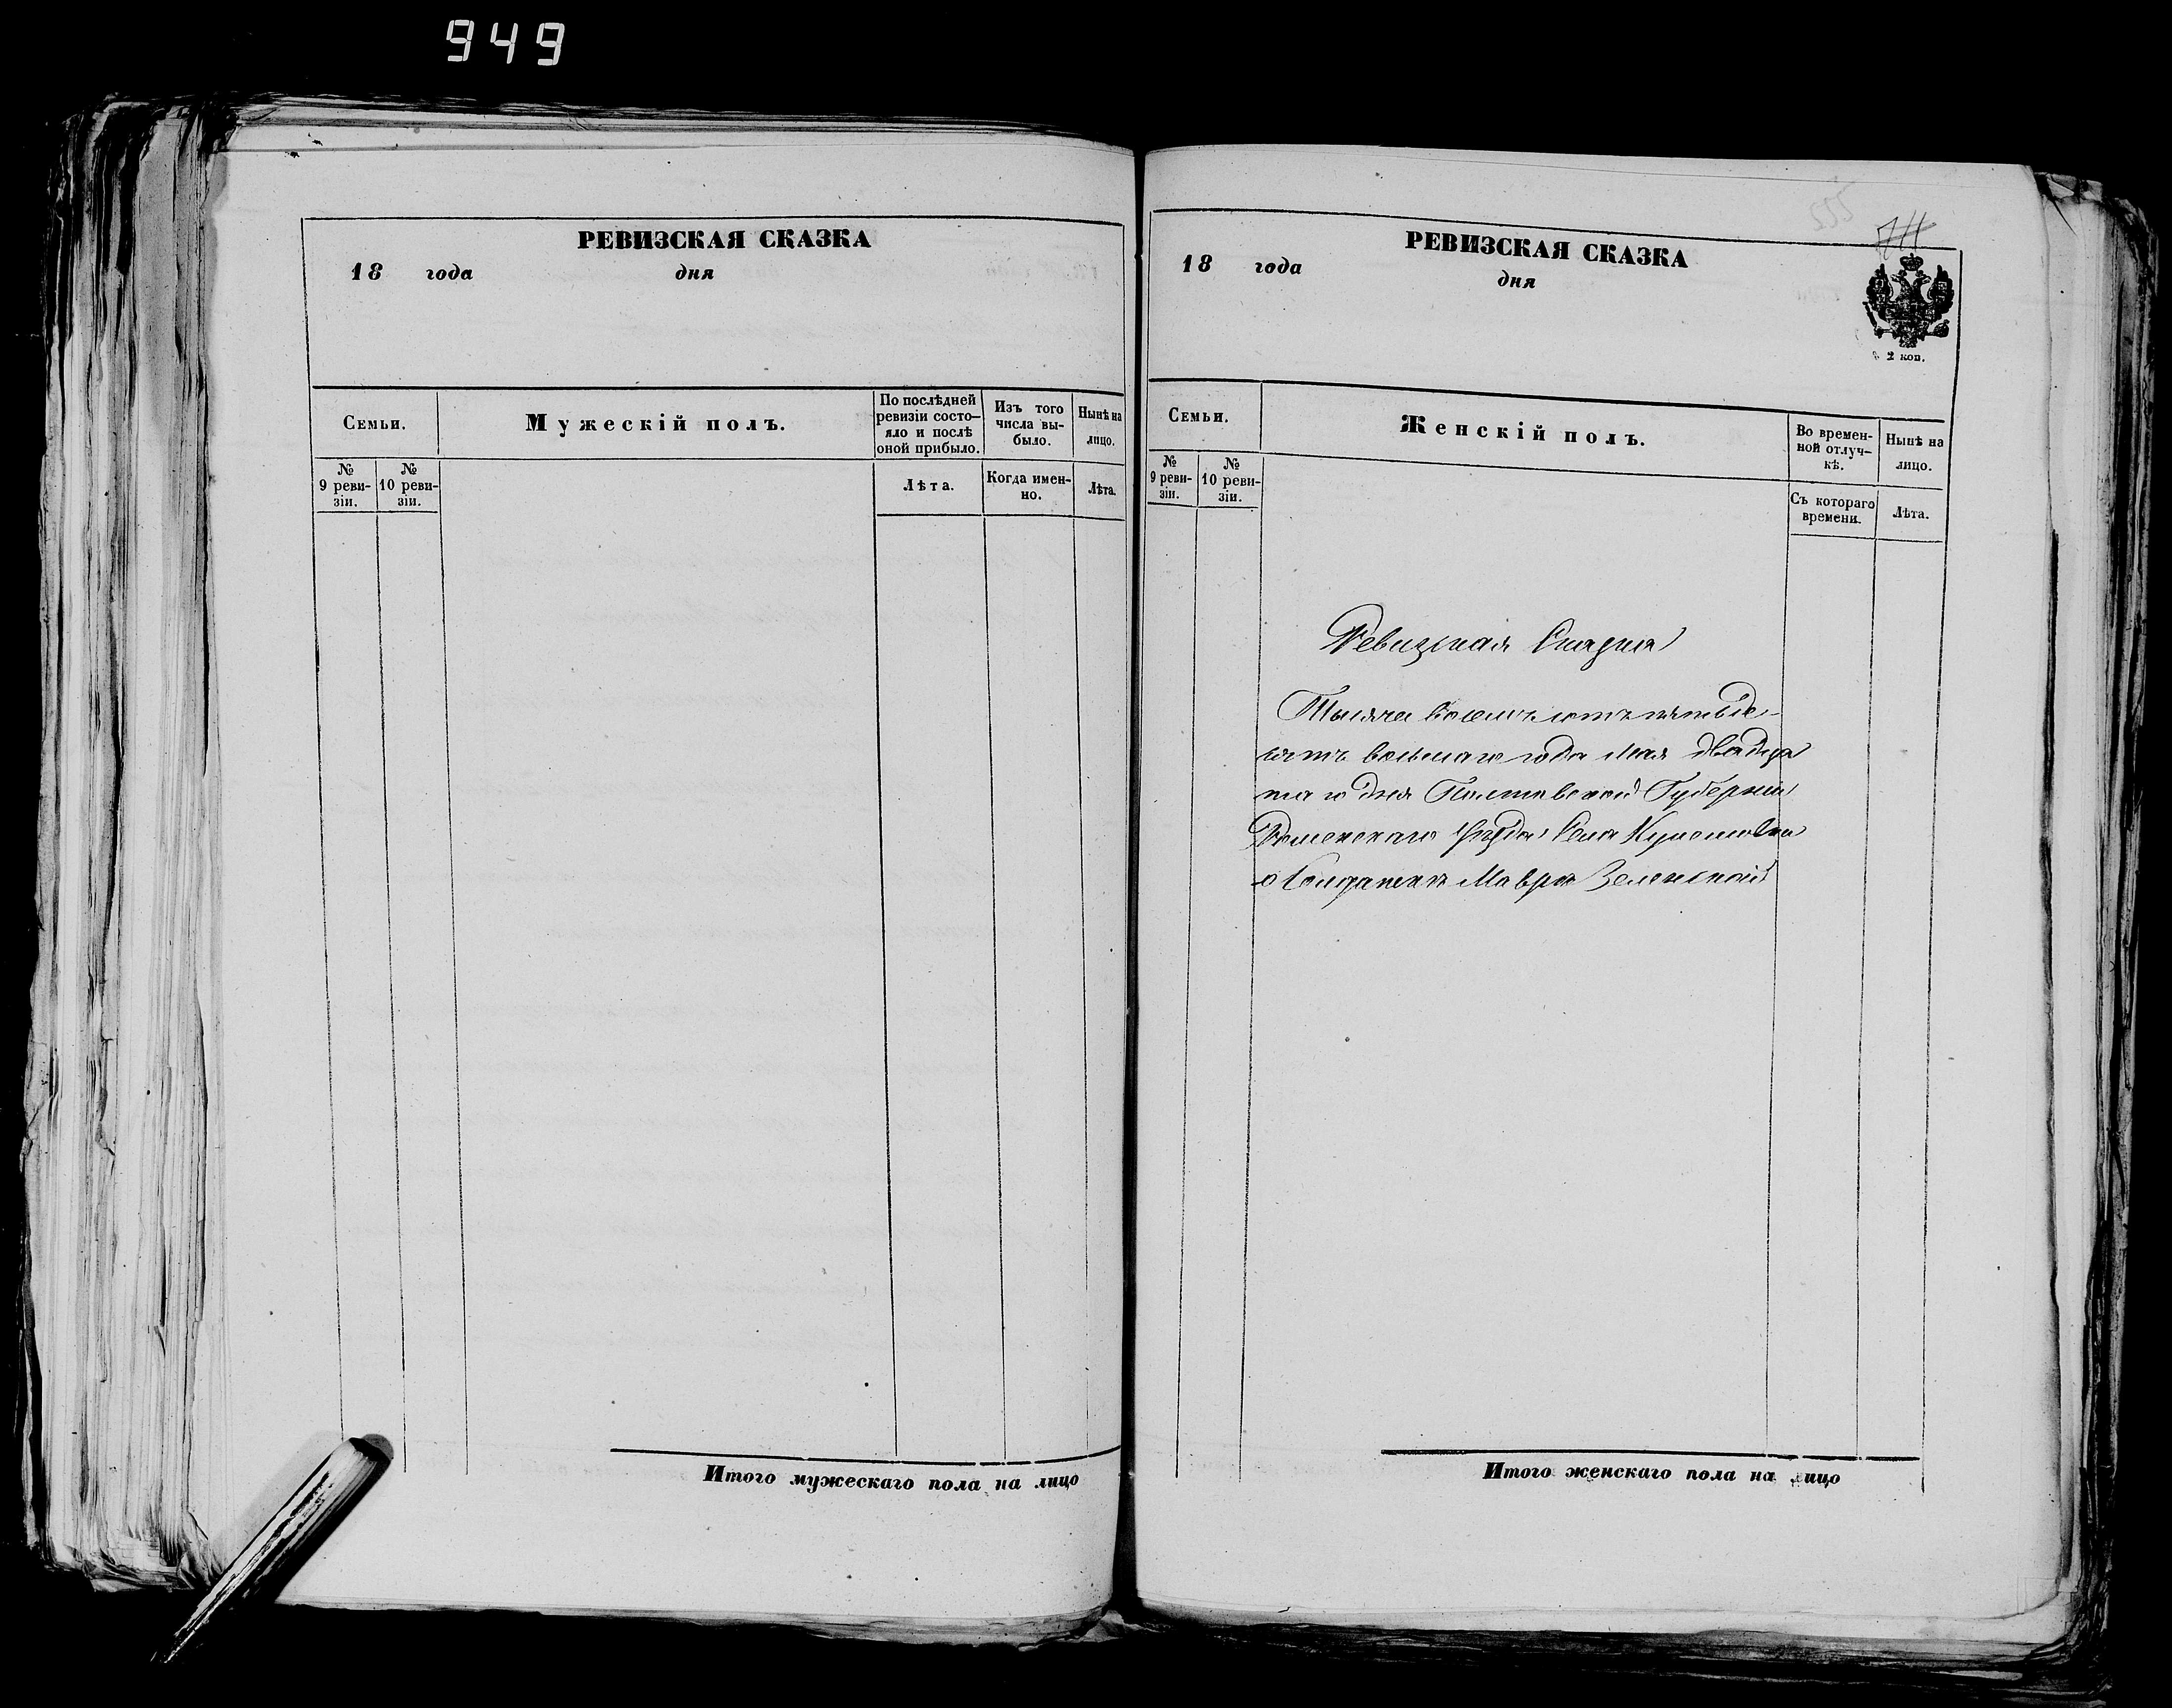 949
РЕВИЗСКАЯ СКАЗКА
18 года дня
Семьи.
Мужескій полъ.
По послѣдней ревизіи состо-
яло и послѣ оной прибыло.
Изъ того числа вы-
было.
Нынѣ на лицо.
№ 9 реви-
зіи.
№ 10 реви-
зіи.
Лѣта.
Когда имен-
но.
Лѣта.
Итого мужескаго пола на лицо
555
711
РЕВИЗСКАЯ СКАЗКА
18 года дня
2 коп.
Семьи.
Женскій полъ.
Во времен-
ной отлуч-
кѣ.
Нынѣ на лицо.
№ 9 реви-
зіи.
№ 10 реви-
зіи.
Съ котораго времени.
Лѣта.
Ревизская Сказка
Тысяча восемъсотъ пятьде-
сятъ восьмаго года мая двадца
таго дня Полтавской Губерніи
Роменскаго уѣзда Села
о Солдаткѣ Маврѣ Зеленской
Итого женскаго пола на лицо